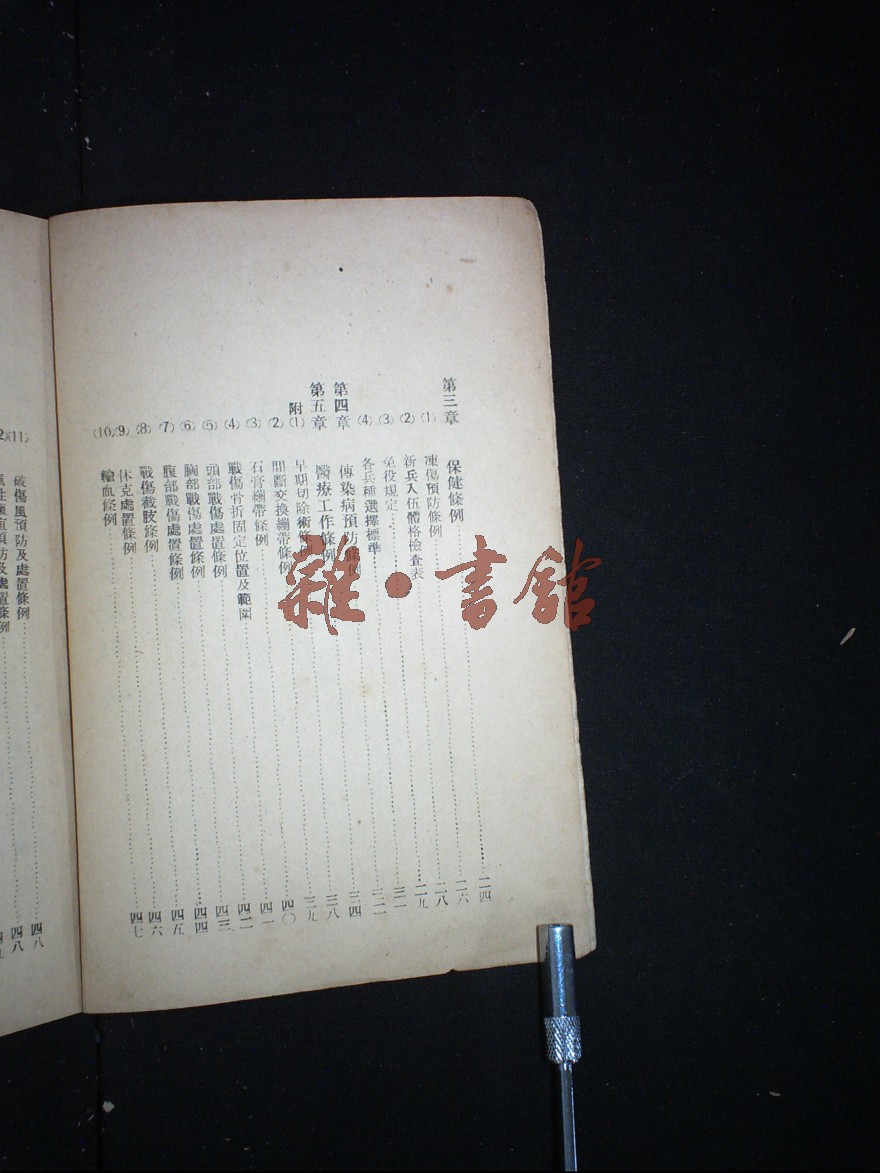 第三章 保健條例……二四
(1) 凍傷預防條例……二六
(2) 新兵入伍體格檢查表……二八
(3) 免役規定……二九
(4) 各兵種選擇標準……三一
第四章 傳染病預防條例……三二
第五章 醫療工作條例……三四
附(1) 早期切除術條例……三八
(2) 間斷交換繃帶條例……三九
(3) 石膏繃帶條例……四〇
(4) 戰傷骨折固定位置及範圍……四一
(5) 頭部戰傷處置條例……四二
(6) 胸部戰傷處置條例……四三
(7) 腹部戰傷處置條例……四四
(8) 戰傷截肢條例……四五
(9) 休克處置條例……四六
(10) 輸血條例……四七
(11) 破傷風預防及處置條例……四八
預防及處置條例……四八
雜·書館